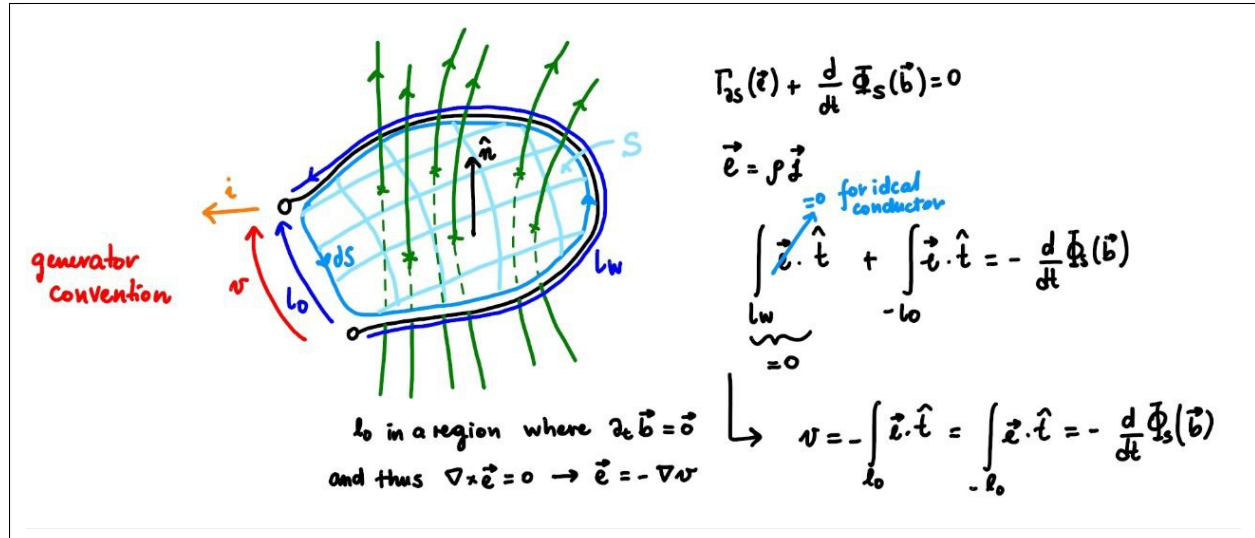 i
n̂
S
generator
convention
v
l₀
∂S
l_w
Γ_∂S(e⃗) + d/dt Φ_S(b⃗) = 0
e⃗ = ρ j⃗
=0 for ideal
conductor
∫_{l_w} e⃗ · t̂ + ∫_{-l₀} e⃗ · t̂ = - d/dt Φ_S(b⃗)
=0
l₀ in a region where ∂_t b⃗ = 0⃗
and thus ∇×e⃗ = 0 → e⃗ = -∇v
v = -∫_{l₀} e⃗ · t̂ = ∫_{-l₀} e⃗ · t̂ = - d/dt Φ_S(b⃗)